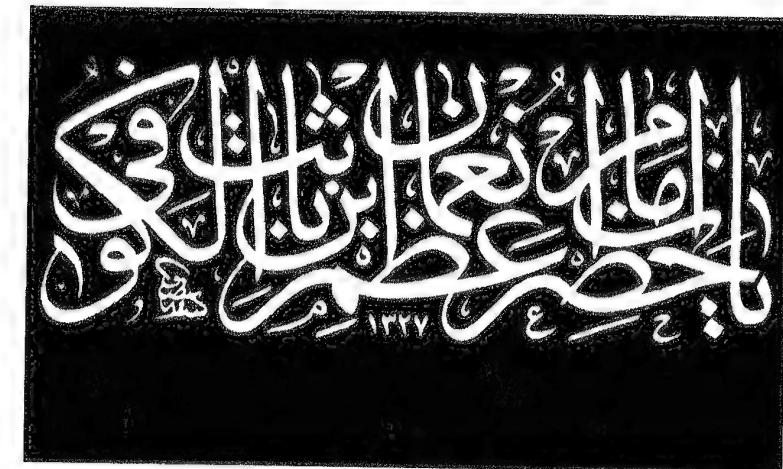 يا حضرت إمام أعظم نعمان بن ثابت الكوفي
١٣٢٧